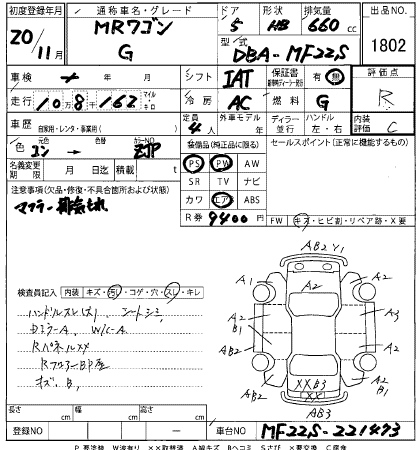 初度登録年月 通称車名・グレード ドア 形状 排気量 出品NO
20/11月 MRワゴン 5 HB 660cc 1802
G 型式 DBA-MF22S
車検 年 月 シフト IAT 保証書 有 無 評価点
走行 10万8千162 マイル キロ 冷房 AC 燃料 G R
車歴 自家用・レンタ・事業用( ) 定員 4人 外車モデル 年 ディーラー 並行 ハンドル 左・右 内装評価 C
色 コン → 色替 カラーNO ZJP 装備品(純正品に限る) セールスポイント(正常に機能するもの)
名義変更期限 月 日 積載 t PS PW AW
注意事項(欠品・修復・不具合箇所および状態) SR TV ナビ
マフラー排気もれ カワ エアB ABS
R券 9400円 FW キズ・ヒビ割・リペア跡・X要
検査員記入 内装 キズ・汚・コゲ・穴・スレ・キレ
ハンドルスレ(大) シートシミ
Dミラー A W/C-A
Rパネル XX
Rフロアー凹
キズ、B,
AB2 Y1
A2 A2 A1
A2 B1 A3
AB2 A2
AB2 XXB3 A2 B1
AB3
長さ cm 幅 cm 高さ cm
登録NO 車台NO MF22S-221473
P 要塗装 W波有り XX取替済 A線キズ Bヘコミ Sさび X要交換 C腐食